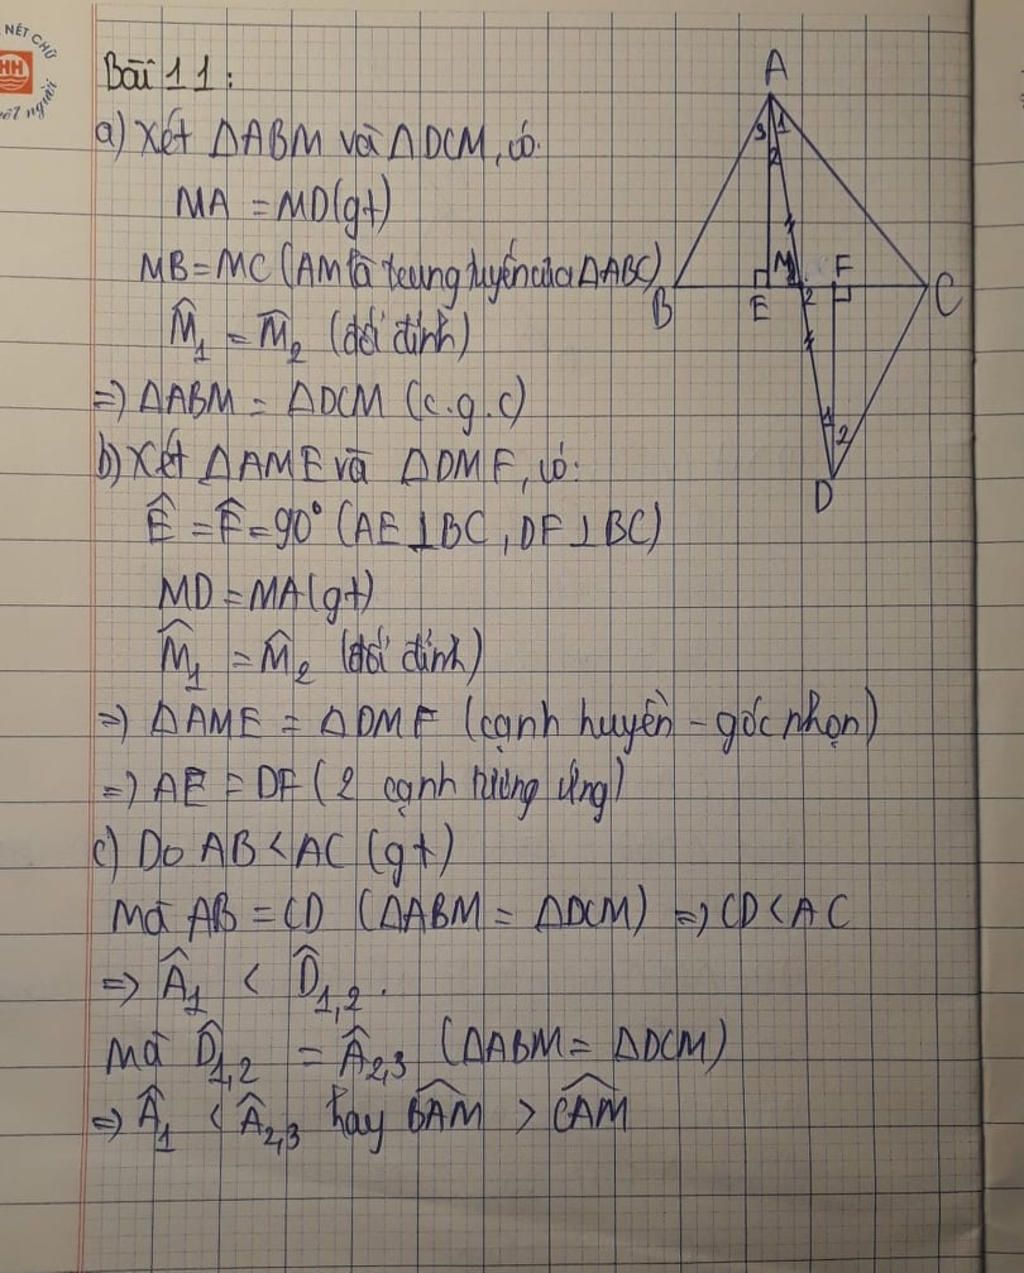 NÉT CHỮ
HH
nết người
Bài 11:
a) Xét ΔABM và ΔDCM, có:
MA = MD(gt)
MB = MC (AM là trung tuyến của ΔABC)
M̂₁ = M̂₂ (đối đỉnh)
=> ΔABM = ΔDCM (c.g.c)
b) Xét ΔAME và ΔDMF, có:
Ê = F̂ = 90° (AE⊥BC, DF⊥BC)
MD = MA(gt)
M̂₁ = M̂₂ (đối đỉnh)
=> ΔAME = ΔDMF (cạnh huyền - góc nhọn)
=> AE = DF (2 cạnh tương ứng)
c) Do AB < AC (gt)
Mà AB = CD (ΔABM = ΔDCM) => CD < AC
=> Â₁ < D̂₁,₂.
Mà D̂₁,₂ = Â₂,₃ (ΔABM = ΔDCM)
=> Â₁ < Â₂,₃ hay B̂AM > ĈAM
A
3 1
2
M
1
F
B
E
2
C
1
2
D